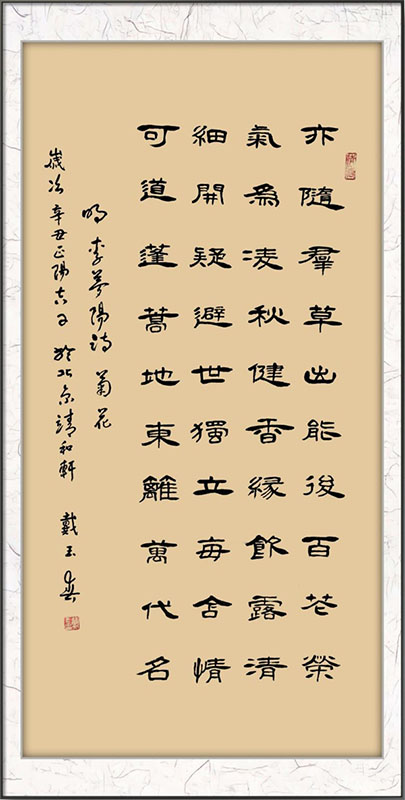 亦隨羣草出能後百花榮
氣為凌秋健香緣飲露清
細開疑避世獨立每含情
可道蓬蒿地東籬萬代名
明李夢陽詩菊花
歲次辛丑正陽吉日於北京靖和軒 戴玉